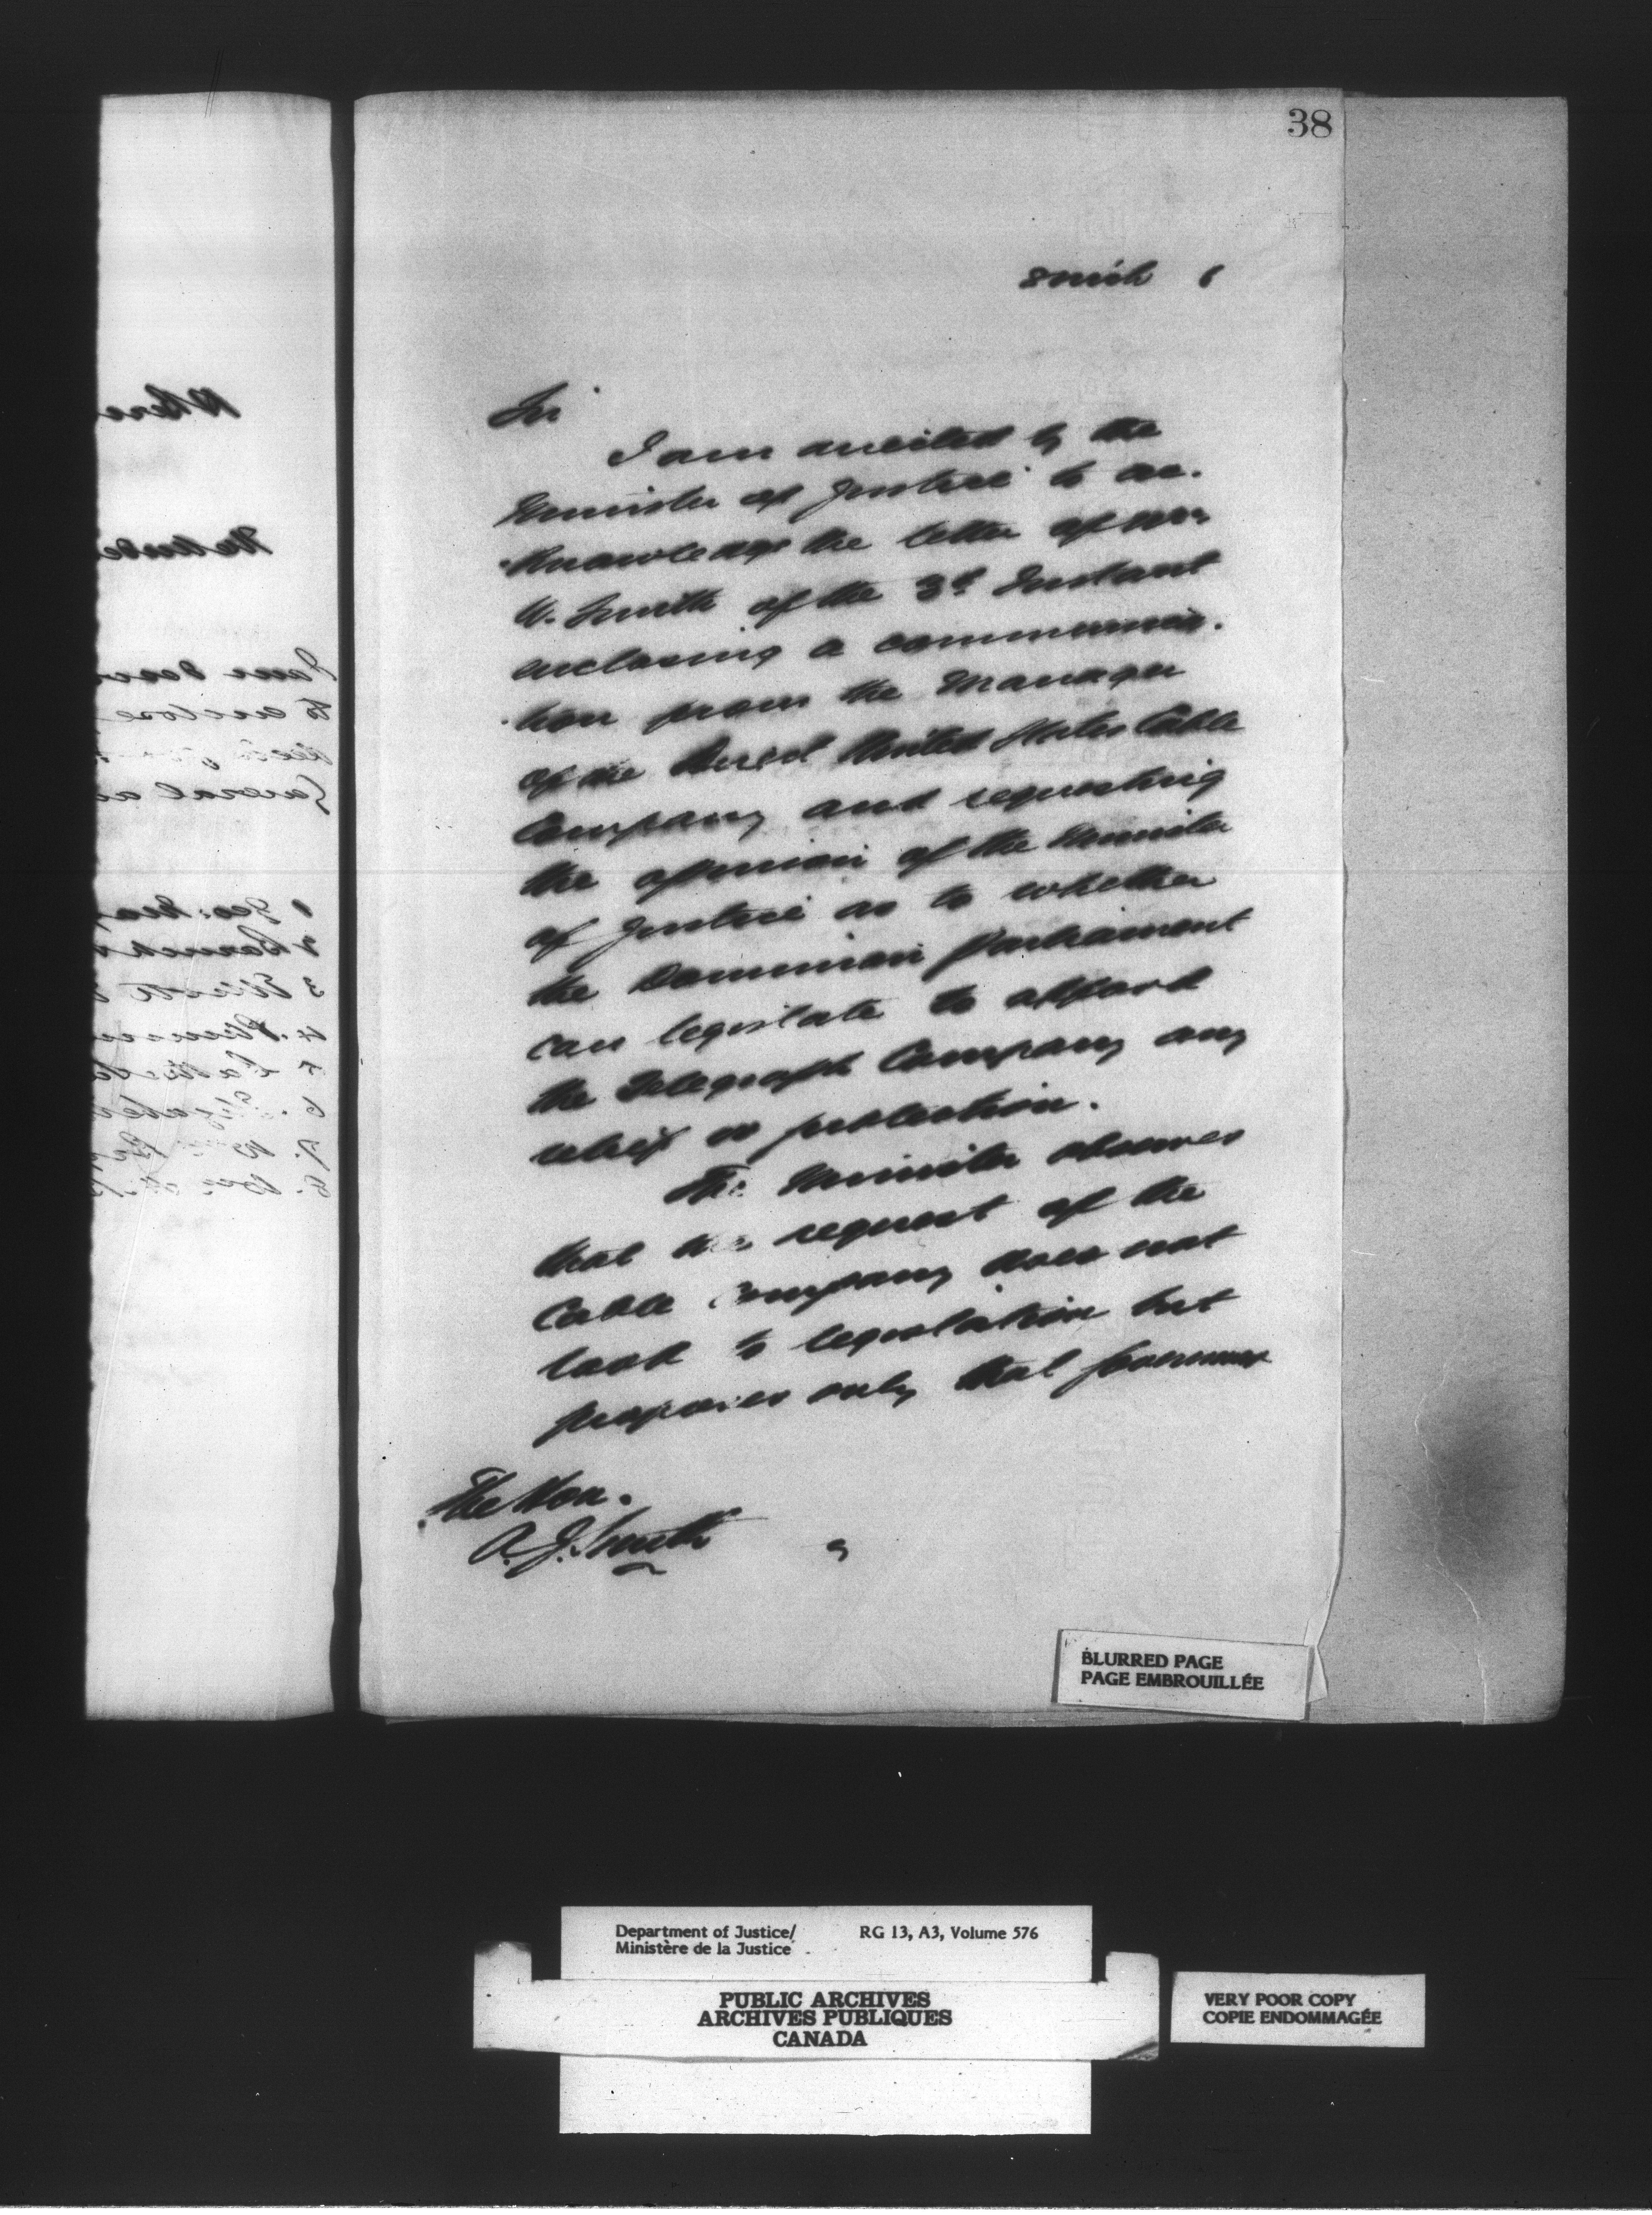 38
Sir
I am directed by the
Minister of Justice to ac-
-knowledge the letter of Mr
W. Smith of the 3d Instant
enclosing a communica-
-tion from the Manager
of the Direct United States Cable
Company and requesting
the opinion of the Minister
of Justice as to whether
the Dominion Parliament
can legislate to afford
the Telegraph Company any
relief or protection.
The Minister observes
that the request of the
Cable Company does not
look to legislation but
proposes only that
The Hon.
A. J. Smith
I am
to enclose
General
BLURRED PAGE
PAGE EMBROUILLÉE
Department of Justice/
Ministère de la Justice
RG 13, A3, Volume 576
PUBLIC ARCHIVES
ARCHIVES PUBLIQUES
CANADA
VERY POOR COPY
COPIE ENDOMMAGÉE